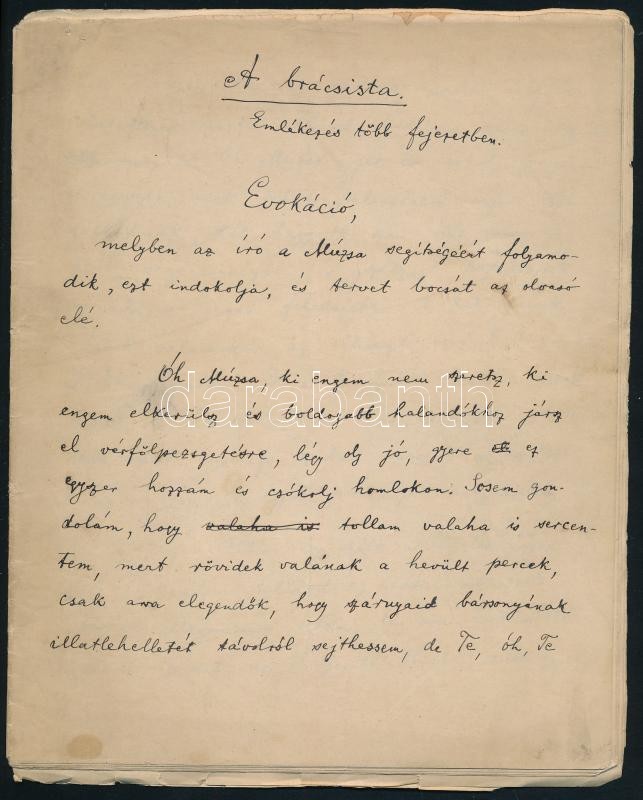 A brácsista.
Emlékezés több fejezetben.
Evokáció,
melyben az író a Múzsa segítségéért folyamo-
dik, ezt indokolja, és tervet bocsát az olvasó
elé.
Óh Múzsa, ki engem nem szeretsz, ki
engem elkerülsz és boldogabb halandókhoz jársz
darabanth
el vérfölpezsgetésre, légy oly jó, gyere ez
egyszer hozzám és csókolj homlokon. Sosem gon-
dolám, hogy valaha is tollam valaha is sercen-
tem, mert rövidek valának a hevült percek,
csak arra elegendők, hogy szárnyaid bársonyának
illatlehelletét távolról sejthessem, de Te, óh, Te